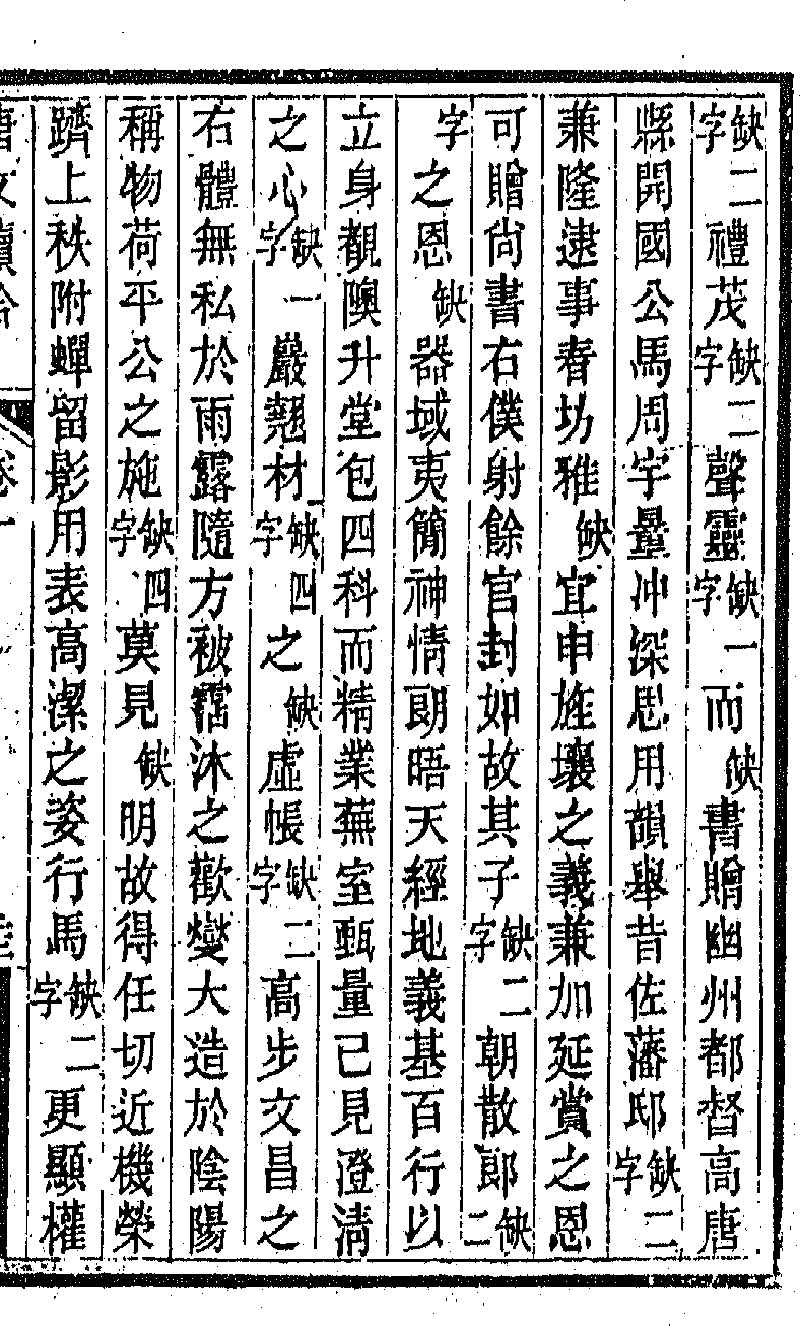 缺二字禮茂缺二字聲靈缺一字而缺書贈幽州都督高唐
縣開國公馬周宇量冲深思用韻舉昔佐藩邸缺二字
兼隆逮事春坊雅缺宜申旌壤之義兼加延賞之恩
可贈尚書右僕射餘官封如故其子缺二字朝散郎缺二
字之恩缺器域夷簡神情朗晤天經地義基百行以
立身覩隩升堂包四科而精業蕪室甄量已見澄淸
之心缺一字巖翹材缺四字之缺虛帳缺二字高步文昌之
右體無私於雨露隨方被霑沐之歡變大造於陰陽
稱物荷平公之施缺四字莫見缺明故得任切近機榮
躋上秩附蟬留影用表高潔之姿行馬缺二字更顯權